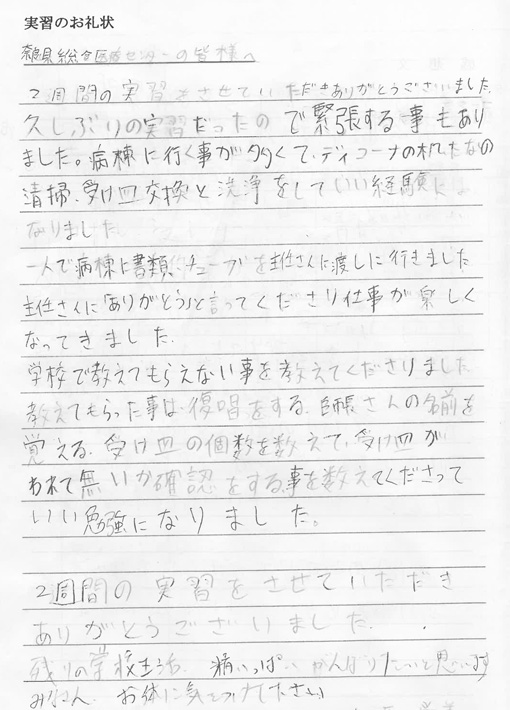 実習のお礼状
奈良県総合医療センターの皆様へ
2週間の実習をさせていただきありがとうございました。
久しぶりの実習だったので緊張する事もあり
ました。病棟に行く事が多くて、ディコーナの机たなの
清掃、受け皿交換と洗浄をしていい経験に
なりました
一人で病棟に書類、チューブを主任さんに渡しに行きました
主任さんに「ありがとう」と言ってくださり仕事が楽しく
なってきました。
学校で教えてもらえない事を教えてくださりました
教えてもらった事は、復唱をする、師長さんの名前を
覚える、受け皿の個数を数えて、受け皿が
われて無いか確認をする事を教えてくださって
いい勉強になりました。
2週間の実習をさせていただき
ありがとうございました。
残りの学校生活、精いっぱいがんばりたいと思います
みなさん、お体に気をつけてください